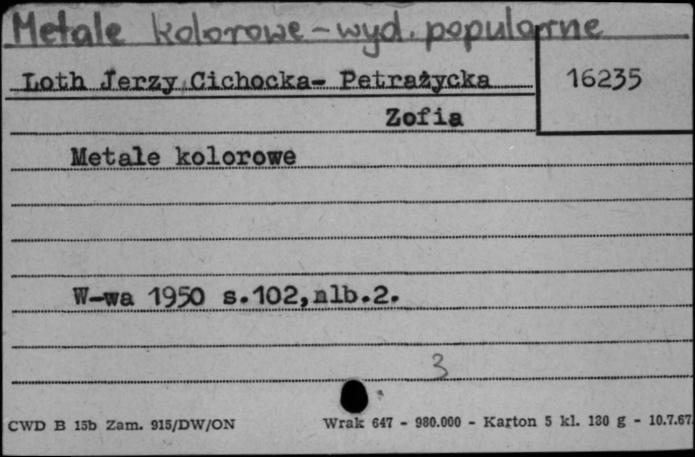 Metale kolorowe – wyd. popularne
Loth Jerzy, Cichocka- Petrażycka
16235
Zofia
Metale kolorowe
W-wa 1950 s.102,nlb.2.
3
CWD B 15b Zam. 915/DW/ON
Wrak 647 - 980.000 - Karton 5 kl. 180 g - 10.7.67